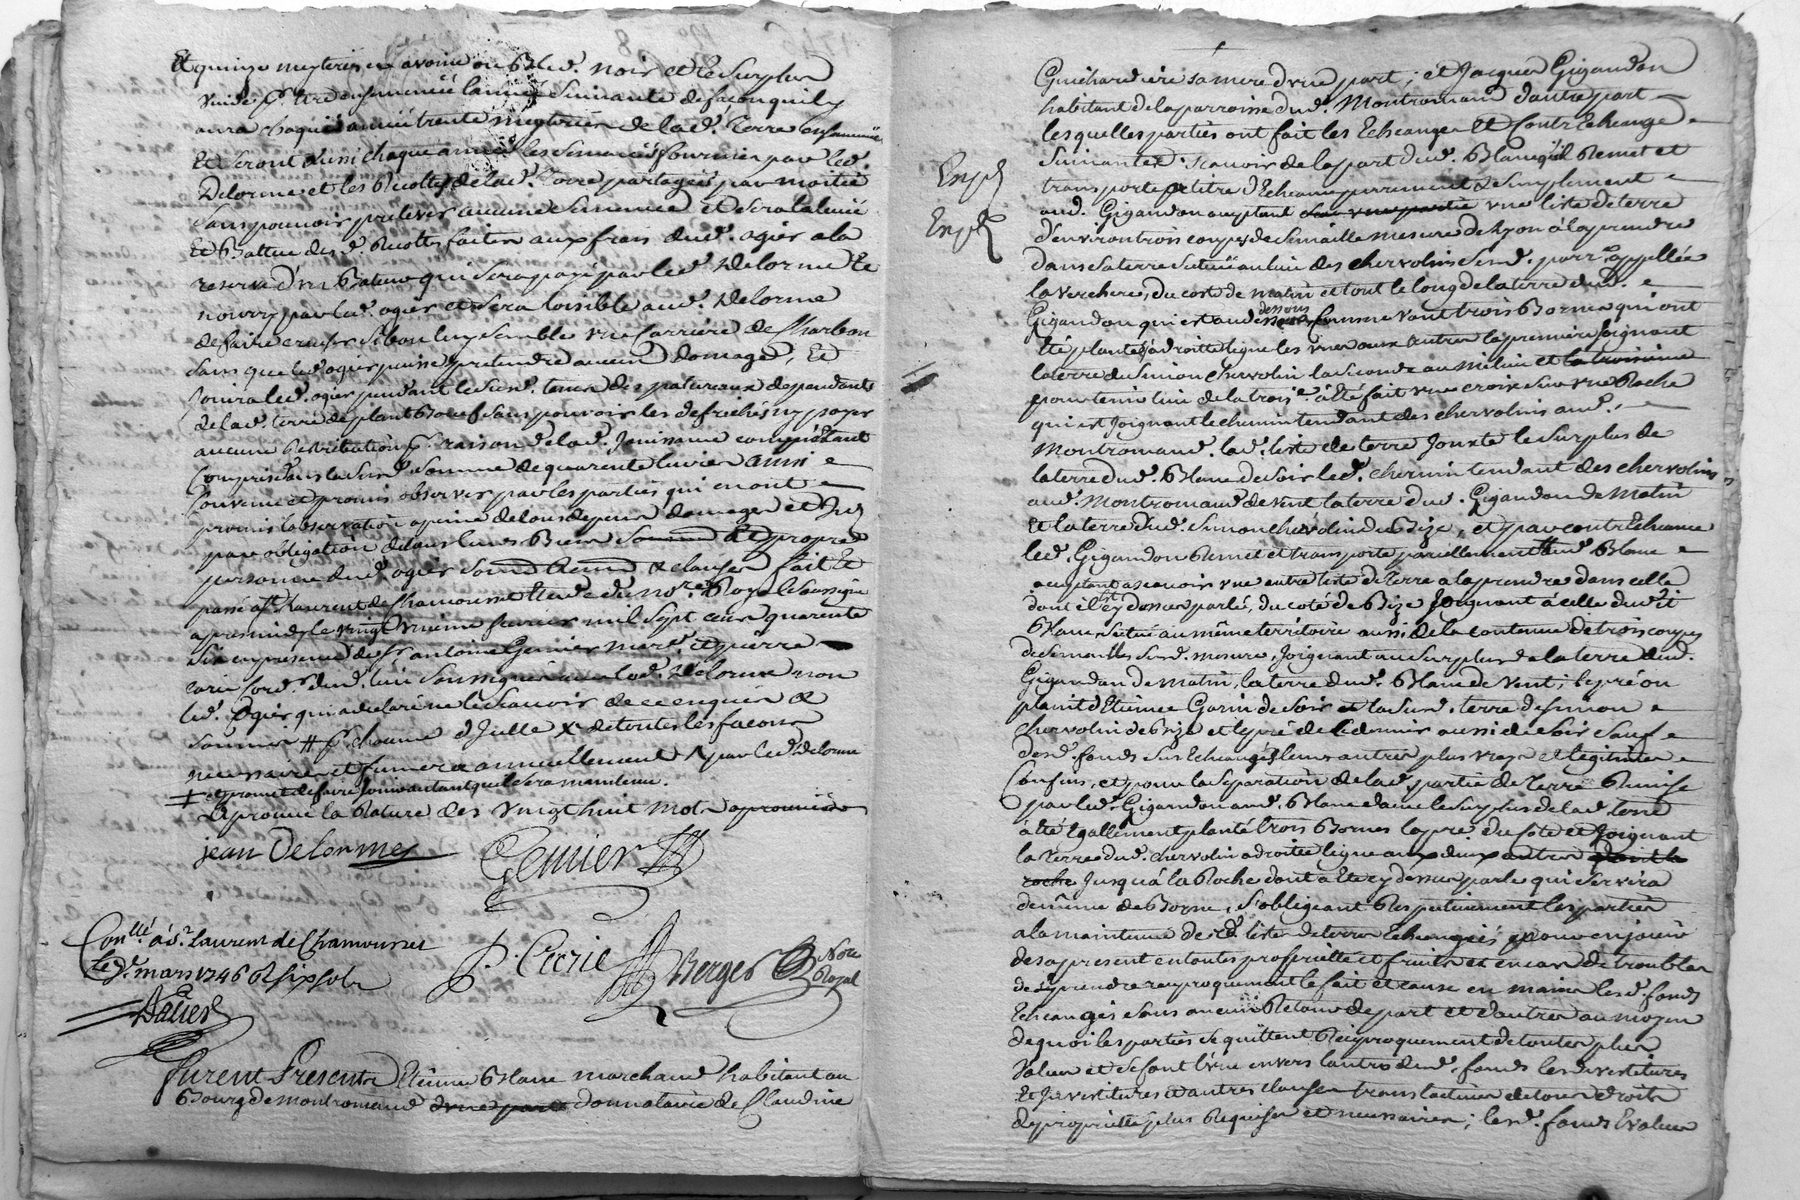 Et quinze meyteries en avoine ou Bled. noir et le surplus
ensemencé l'année suivante de façon quil y
aura chaque année trente meyterées de lad. terre ensemencée
Et seront aussi chaque année les semences fournies par led.
Delorme et les Recoltes de lad. terre partagées par moitié
sans pouvoir prelever aucune semence et sera la levée
Et Battue desd. Recoltes faites aux frais dud. ogier a la
reserve d'un Bateur qui sera payé par led. Delorme Et
nourry par led. ogier et sera loisible aud. Delorme
de faire creuser si bon luy semble une carrière de Charbon
sans que led. ogier puisse pretendre aucun domage, Et
Jouira led. ogier pendant led. tems des patureaux dependants
de lad. terre de plant Boeuf sans pouvoir les defricher ny payer
aucune Retribution pr. raison de lad. Jouissance
Compris dans la susd. somme de quarente livres ainsi
Convenu et promis observer par les parties qui en ont
promis l'observation a peine de tous depens domages et
par obligation de tous leurs Biens
personne dud. ogier & clauses fait Et
passé a St. Laurent de Chamousset Etude du nore. Royal soussigné
apres midy le vingt unième fevrier mil sept cens quarente
six en presence de Sr antoine Genier mard. et pierre
Cerie cord.r dud. lieu soussignés avec led. Delorme non
led. Ogier qui a declaré ne le sçavoir de ce enquis &
sommé # pr chaume d'Julle x de toutes les façons
necessaires et fumera annuellement par led. Delorme
+ et promet de faire
Aprouvé la Rature des vingt huit mots
jean Delorme Genier
Conllé à St. Laurent de Chamousset
Le 7e. mars 1746 R six sols
P. Cerie Berger Nore
Royal
Dalier
Furent Presents Etienne Blanc marchand habitant au
Bourg de montromand d'une part donnataire de Claudine
Guichardière sa mere d'une part; et Jacques Gigandon
habitant de la parroisse dud. Montromand d'autre part
lesquelles parties ont fait les Echanges Et Contr'Echange
suivantes. sçavoir de la part dud. Blanc Remet et
transporte a titre d'Echange purement & simplement
aud. Gigandon aceptant une liste de terre
d'environ trois coupes de semaille mesure de Lyon à la prendre
dans sa terre située au lieu des chervolins susd. parrse. appellée
la verchere, du coté de matin et tout le long de la terre dud.
Gigandon qui est au dessous suivant trois Bornes qui ont
été plantées a droitte ligne les unes aux autres la première Joignant
la terre de Simon Chervolin la seconde au milieu et la troisième
pour tenir lieu de la troise. a été fait une croix sur une Roche
qui est Joignant le chemin tendant des chervolins aud.
Montromand. lad. liste de terre Jouxte le surplus de
la terre dud. Blanc de soir led. chemin tendant des chervolins
aud. Montromand de vent la terre dud. Gigandon de Matin
Et la terre dud. Simon chervolin de Bize, et par contr'Echange
led. Gigandon Remet et transporte pareillement aud. Blanc
aceptant a sçavoir une autre liste de terre a la prendre dans celle
dont il est cy dessus parlé, du coté de Bize Joignant à celle dudit
Blanc située au même territoire aussi de la contenue de trois coupes
de Semailles susd. mesure, Joignant au surplus de la terre dud.
Gigandon de Matin, la terre dud. Blanc de Vent; le pré ou
plain d'Etienne Garin de soir et la susd. terre de simon
chervolin de Bize et le pré de aussi de soir sauf
desd. fonds sus Echangés leurs autres plus vrays et legitimes
Confins, et pour la separation de lad. partie de terre Remise
par led. Gigandon aud. Blanc dans le surplus de lad. terre
à été Egallement planté trois Bornes la pre. du coté et Joignant
la terre dud. chervolin a droitte ligne aux deux autres
jusqu'à la Roche dont a été cy dessus parlé qui servira
de même de Borne, s'obligeant Respectivement les parties
a la maintenue desd. listes de terre Echangées pour en jouir
des a present en toutes proprieté et fruits et en cas de troubles
de s'y prendre reciproquement le fait et cause en main lesd. fonds
Echangés sans aucun Retour de part et d'autres au moyen
de quoi les parties se quittent Reciproquement de toutes plus
Valeur et se font l'une envers l'autre desd. fonds les devestitures
Et Investitures et autres clauses translatives de tous droits
de proprieté plus Requises et necessaires; lesd. fonds Evalués